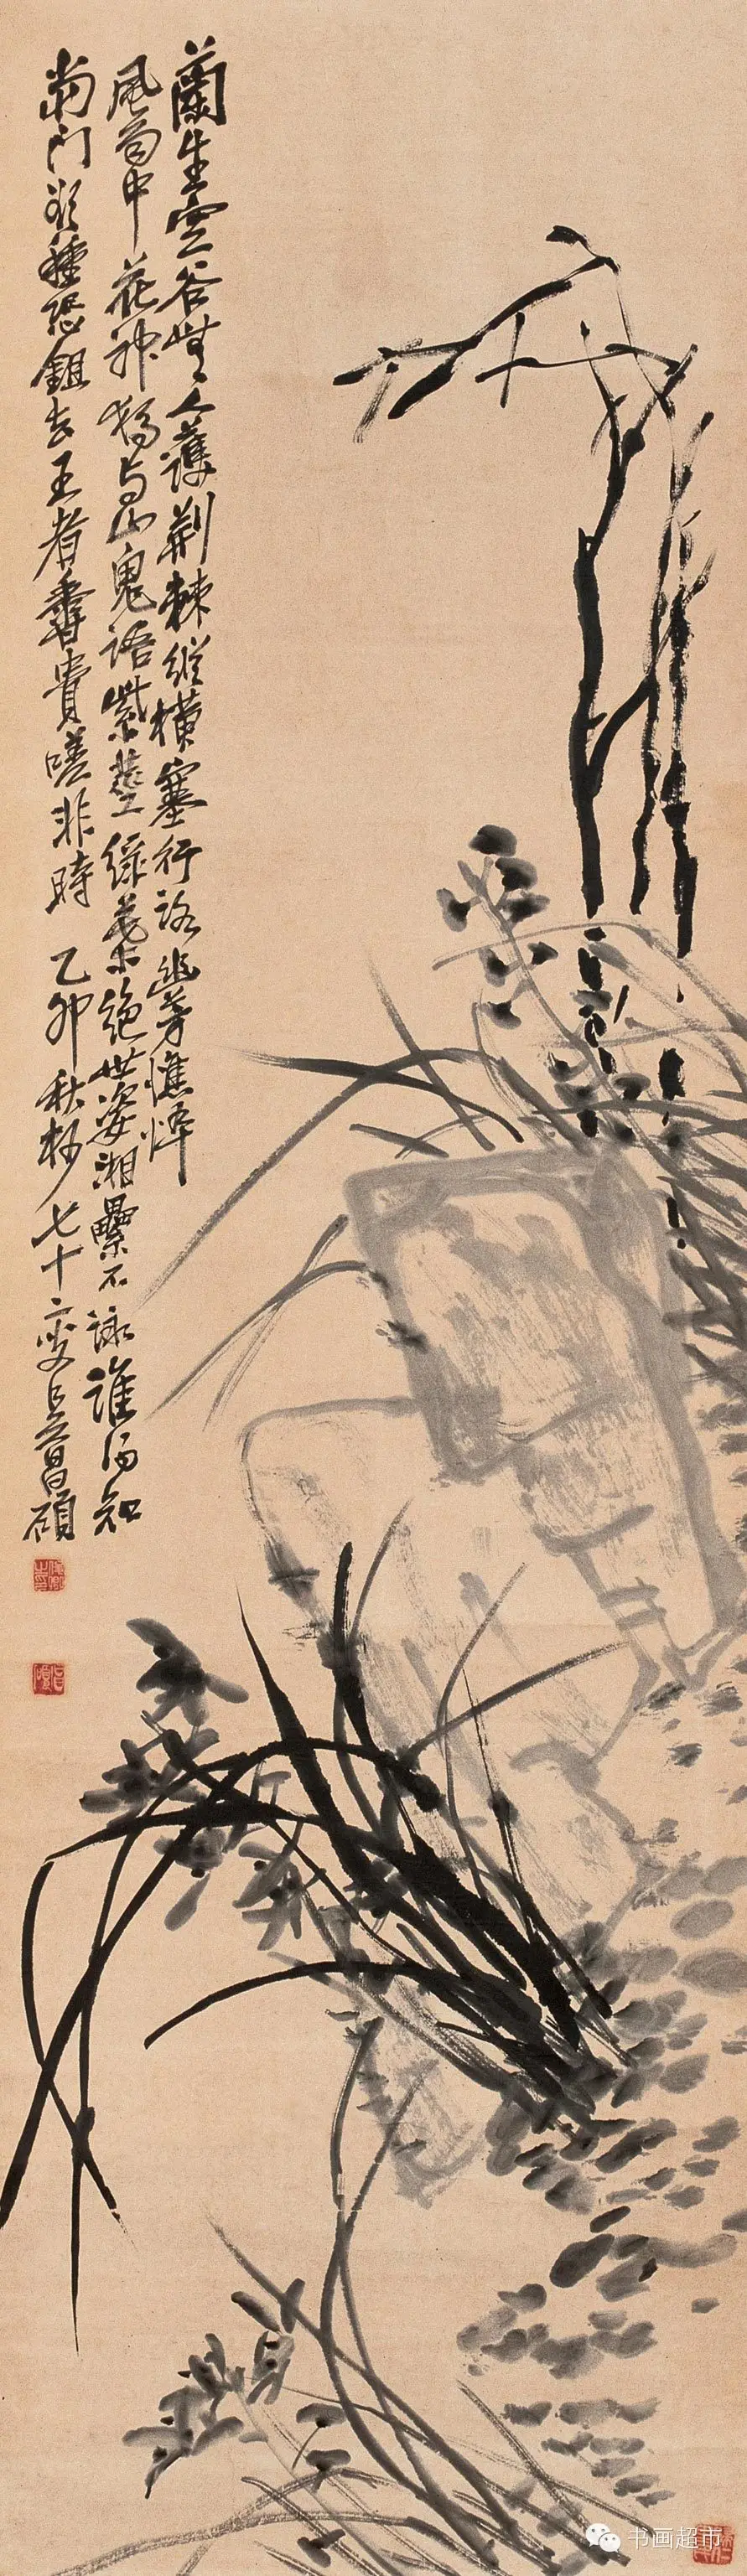 蘭生空谷無人護荆棘縱橫塞行路幽芳憔悴
風雨中花神獨与山鬼語紫莖綠葉絶世姿湘纍不詠誰得知
當門欲種恐鉏去王者香貴嗟非時 乙卯秋杪七十二叟吳昌碩
书画超市